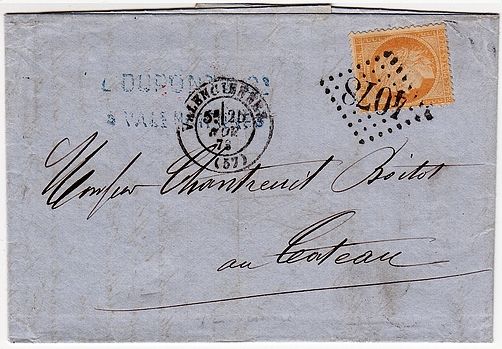 DUPONT
à VALEN
4078
VALENCIENNES
5E 20
NOV
73
(57)
Monsieur Chantreuil Boitot
au Cateau